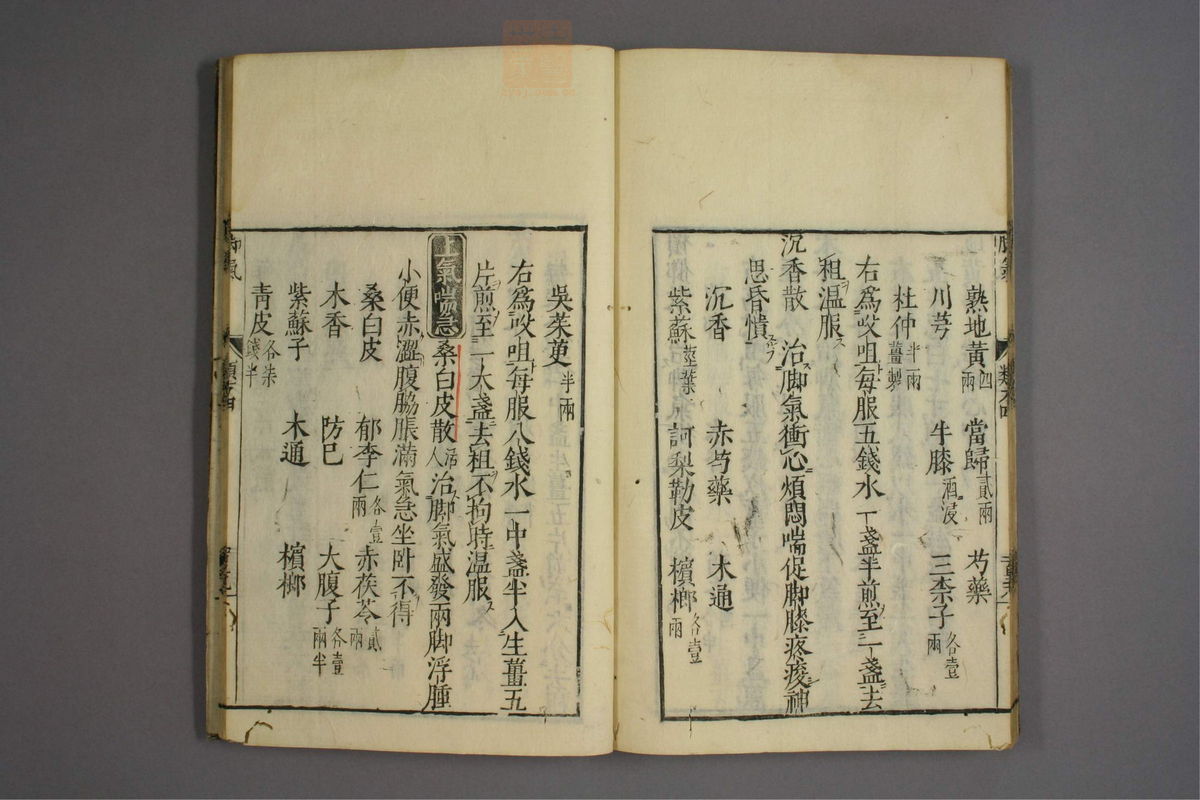 熟地黃四兩 當歸貳兩 芍藥
川芎 牛膝酒浸 三柰子各壹兩
杜仲半兩薑製
右為㕮咀每服五錢水一盞半煎至一盞去
粗温服
沉香散 治脚氣衝心煩悶喘促脚膝疼痠神
思昏憒
沉香 赤芍藥 木通
紫蘇莖葉 訶梨勒皮 檳榔各壹兩
吳茱萸半兩
右為㕮咀每服八錢水一中盞半入生薑五
片煎至一大盞去粗不拘時温服
上氣喘急 桑白皮散活人 治脚氣盛發兩脚浮腫
小便赤澀腹脇脹滿氣急坐卧不得
桑白皮 郁李仁各壹兩 赤茯苓貳兩
木香 防已 大腹子各壹兩半
紫蘇子 木通 檳榔
青皮各柒錢半